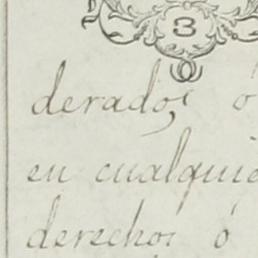 3
derados ó
en cualquie
derechos ó